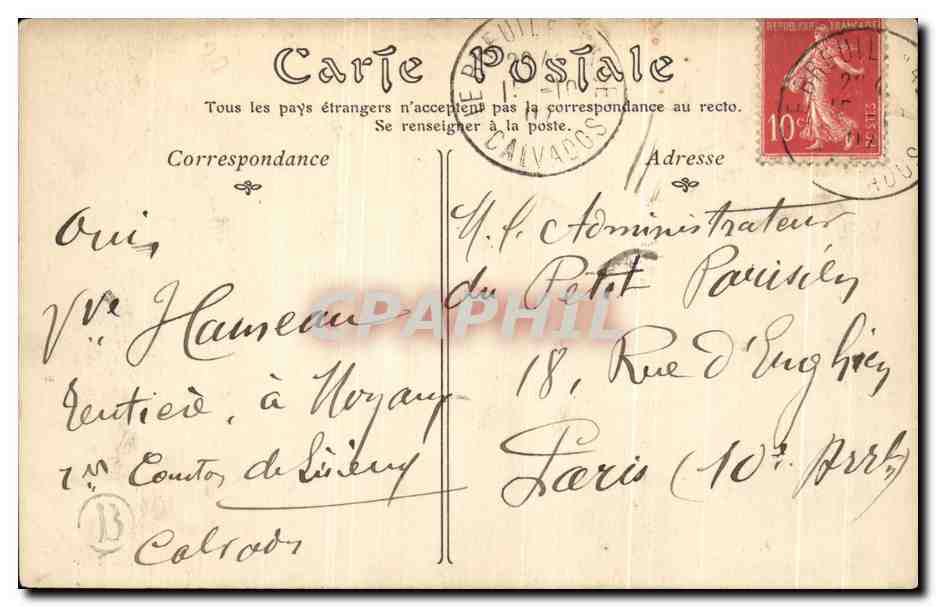 Carte Postale
Tous les pays étrangers n'acceptent pas la correspondance au recto.
Se renseigner à la poste.
Correspondance
Adresse
REPUBLIQUE FRANÇAISE
10c
POSTES
LE BREUIL
CALVADOS
Vve Hauseau
rentière, à Moyaux
Canton de Lisieux
Calvados
B
M. l'Administrateur
du Petit Parisien
18, Rue d'Enghien
Paris (10e Arrt)
CPAPHIL